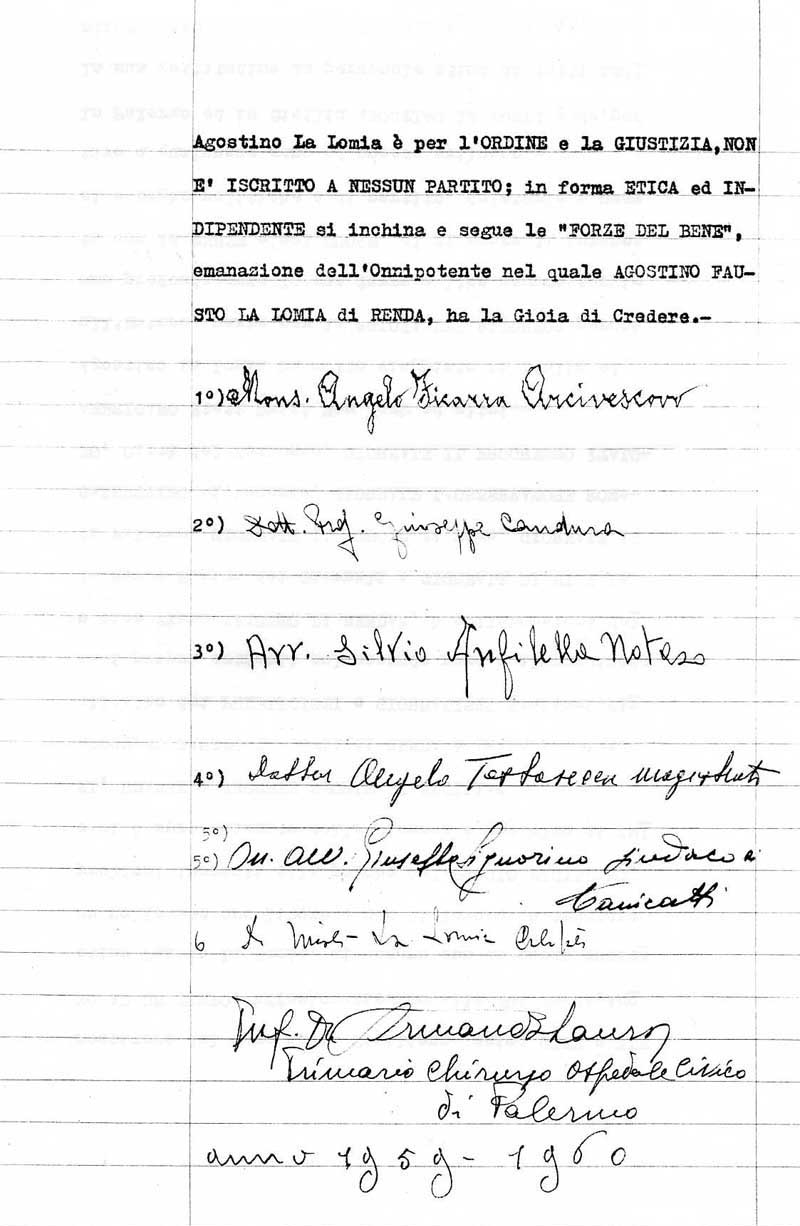 Agostino La Lomia è per l'ORDINE e la GIUSTIZIA,NON
E' ISCRITTO A NESSUN PARTITO; in forma ETICA ed IN-
DIPENDENTE si inchina e segue le "FORZE DEL BENE",
emanazione dell'Onnipotente nel quale AGOSTINO FAU-
STO LA LOMIA di RENDA, ha la Gioia di Credere.-
1°) Mons. Angelo Ficarra Arcivescovo
2°) Dott. Prof. Giuseppe Candura
3°) Avv. Silvio Notaro
4°) Dottor Angelo magistrato
5°)
5°) On. Avv. Giuseppe Signorino Sindaco di
Canicattì
6 La Lomia
Prof. Dr. Armando
Primario Chirurgo Ospedale Civico
di Palermo
anno 1959-1960